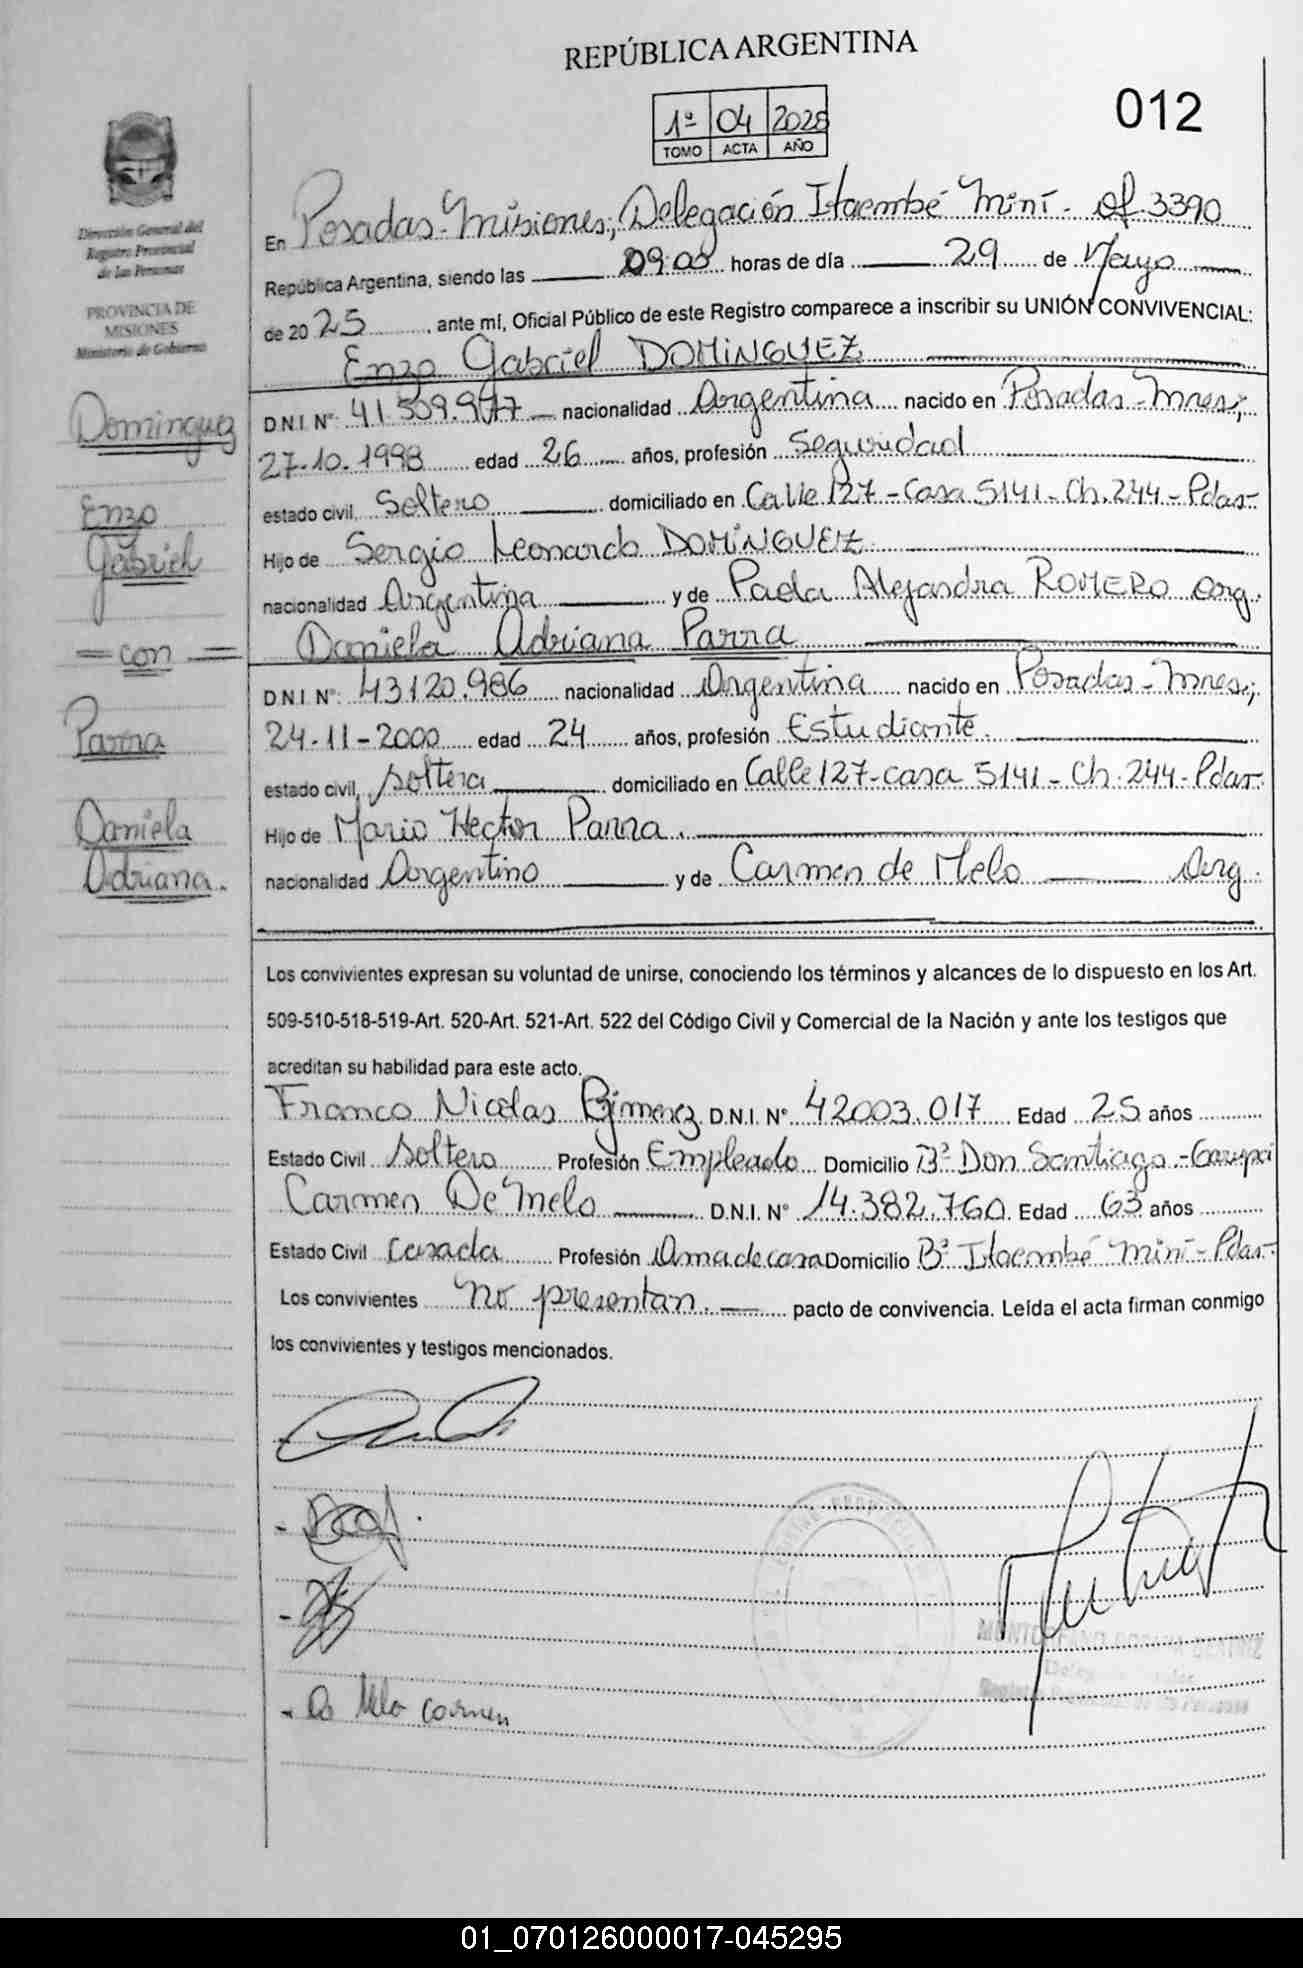 REPÚBLICA ARGENTINA
012
1º 04 2025
TOMO ACTA AÑO
Dirección General del
Registro Provincial
de las Personas
PROVINCIA DE
MISIONES
Ministerio de Gobierno
En Posadas-Misiones; Delegación Itaembé Miní - of 3390
República Argentina, siendo las 09:00 horas de día 29 de Mayo
de 2025, ante mí, Oficial Público de este Registro comparece a inscribir su UNIÓN CONVIVENCIAL:
Enzo Gabriel DOMINGUEZ
D.N.I. Nº: 41.509.977 nacionalidad Argentina nacido en Posadas-Mnes;
27-10-1998 edad 26 años, profesión Seguridad
estado civil, Soltero domiciliado en Calle 127 - Casa 5141 - Ch. 244 - Pdas-
Hijo de Sergio Leonardo DOMINGUEZ
nacionalidad Argentina y de Paola Alejandra ROMERO arg.
Daniela Adriana Parra
D.N.I. Nº: 43120.986 nacionalidad Argentina nacido en Posadas-Mnes;
24-11-2000 edad 24 años, profesión Estudiante.
estado civil, soltera domiciliado en Calle 127-casa 5141-Ch.244-Pdas-
Hijo de Mario Hector Parra.
nacionalidad Argentino y de Carmen de Melo Arg.
Dominguez
Enzo
Gabriel
=con=
Parra
Daniela
Adriana.
Los convivientes expresan su voluntad de unirse, conociendo los términos y alcances de lo dispuesto en los Art.
509-510-518-519-Art. 520-Art. 521-Art. 522 del Código Civil y Comercial de la Nación y ante los testigos que
acreditan su habilidad para este acto.
Franco Nicolas D.N.I. Nº 42003.017 Edad 25 años
Estado Civil soltero Profesión Empleado Domicilio Bº Don Santiago-Garupá
Carmen De Melo D.N.I. Nº 14.382.760 Edad 63 años
Estado Civil casada Profesión Ama de casa Domicilio Bº Itaembé Miní-Pdas-
Los convivientes no presentan. pacto de convivencia. Leída el acta firman conmigo
los convivientes y testigos mencionados.
- De Melo Carmen
01_070126000017-045295